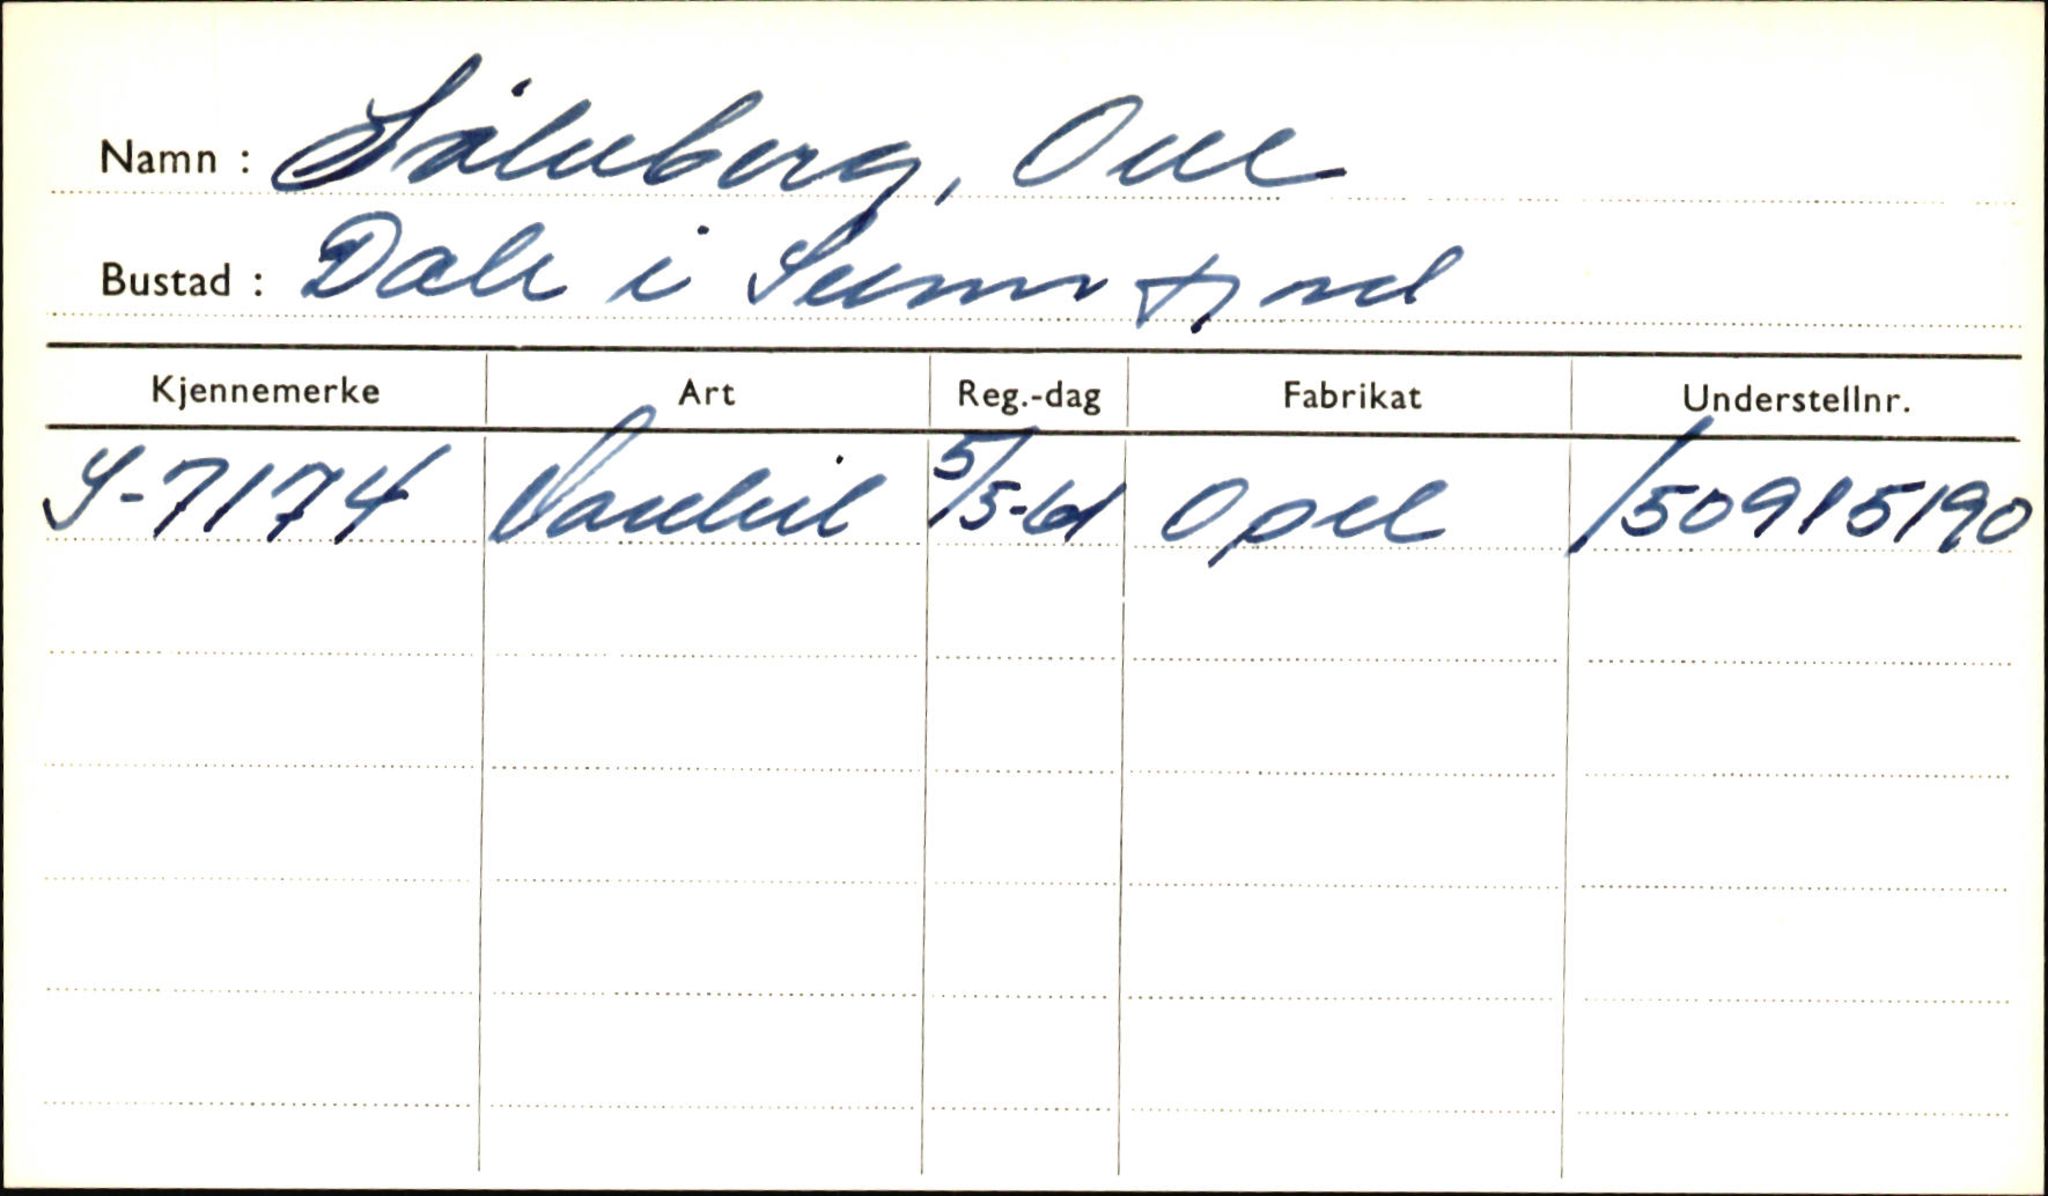 Namn : Sålnberg, Odd
Bustad : Dale i Sunnfjord
Kjennemerke Art Reg.-dag Fabrikat Understellnr.
S-7174 Varebil 5/5-61 Opel /50915190